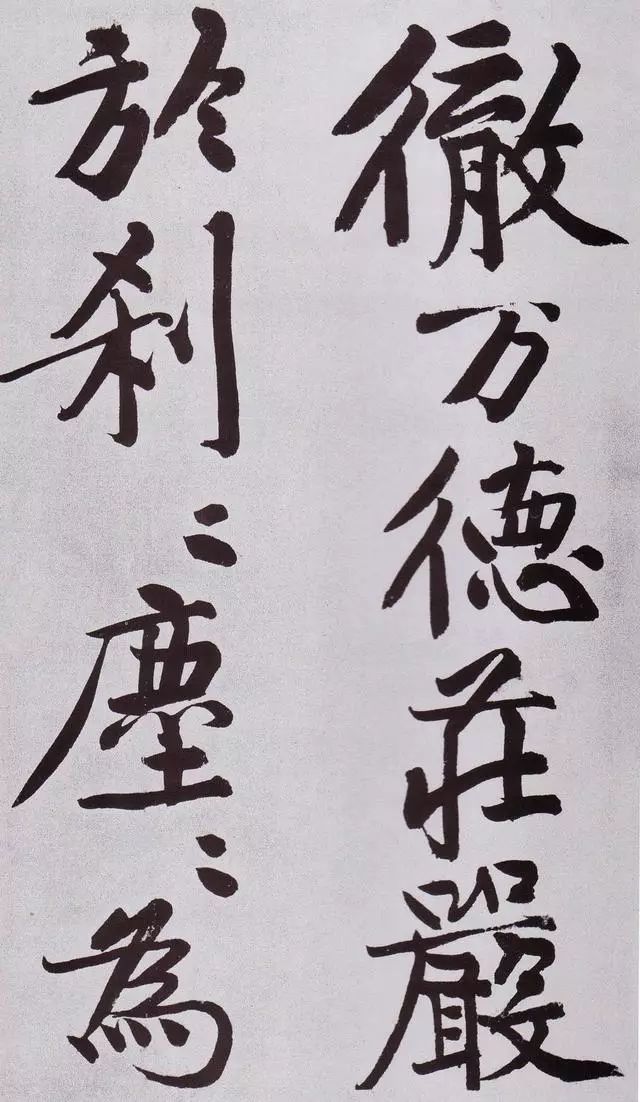 徹万德莊嚴
於剎〻塵〻為